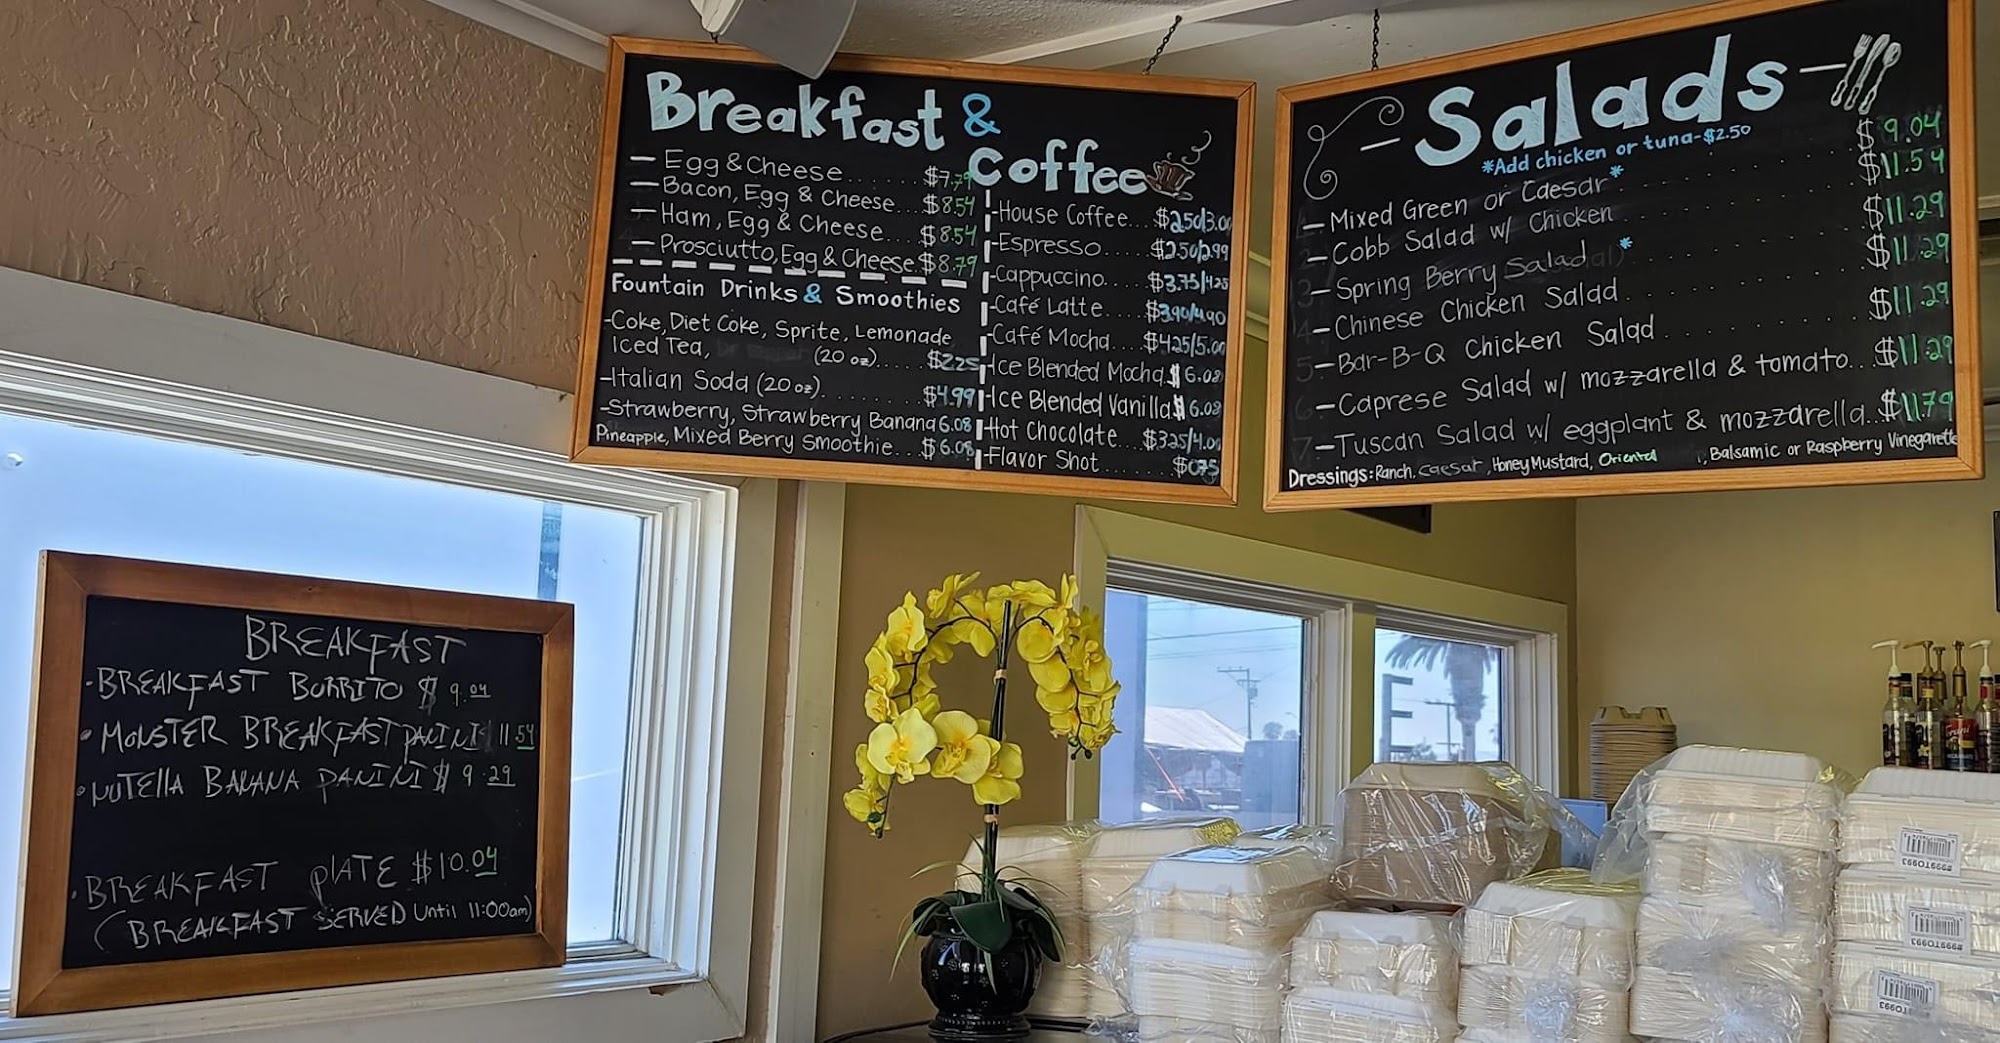 Breakfast &
Coffee
— Egg & Cheese........ $7.79
— Bacon, Egg & Cheese... $8.54
— Ham, Egg & Cheese.... $8.54
— Prosciutto, Egg & Cheese. $8.79
Fountain Drinks & Smoothies
-Coke, Diet Coke, Sprite, Lemonade
Iced Tea, (20 oz)..... $2.25
-Italian Soda (20 oz).......... $4.99
-Strawberry, Strawberry Banana 6.08
Pineapple, Mixed Berry Smoothie... $6.08
-House Coffee... $2.50/3.00
-Espresso...... $2.50/2.99
-Cappuccino.... $3.75/4.25
-Café Latte..... $3.90/4.90
-Café Mocha.... $4.25/5.00
-Ice Blended Mocha.$ 6.08
-Ice Blended Vanilla.$ 6.08
-Hot Chocolate... $3.25/4.00
-Flavor Shot......... $0.75
— Salads —
*Add chicken or tuna-$2.50
1 — Mixed Green or Caesar* $9.04
2 — Cobb Salad w/ Chicken $11.54
3 — Spring Berry Salad* $11.29
4 — Chinese Chicken Salad $11.29
5 — Bar-B-Q Chicken Salad $11.29
6 — Caprese Salad w/ mozzarella & tomato... $11.29
7 — Tuscan Salad w/ eggplant & mozzarella... $11.79
Dressings: Ranch, Caesar, Honey Mustard, Oriental, Balsamic or Raspberry Vinegarette
BREAKFAST
• BREAKFAST BURRITO $ 9.04
• MONSTER BREAKFAST PANINI $ 11.54
• NUTELLA BANANA PANINI $ 9.29
• BREAKFAST PLATE $10.04
(BREAKFAST SERVED Until 11:00am)
E
#999TO993
#999TO993
#999TO993